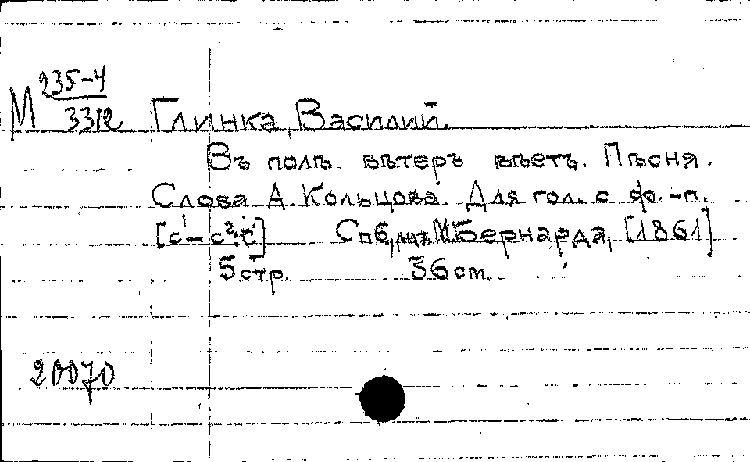 М 235-4
3312 Глинка, Василий.
Въ полѣ вѣтеръ вѣетъ. Пѣсня.
Слова А. Кольцова. Для гол. с фо.-п.
[c¹-c²] Спб, М. Бернарда, [1861]
5 стр. 36 cm.
20070